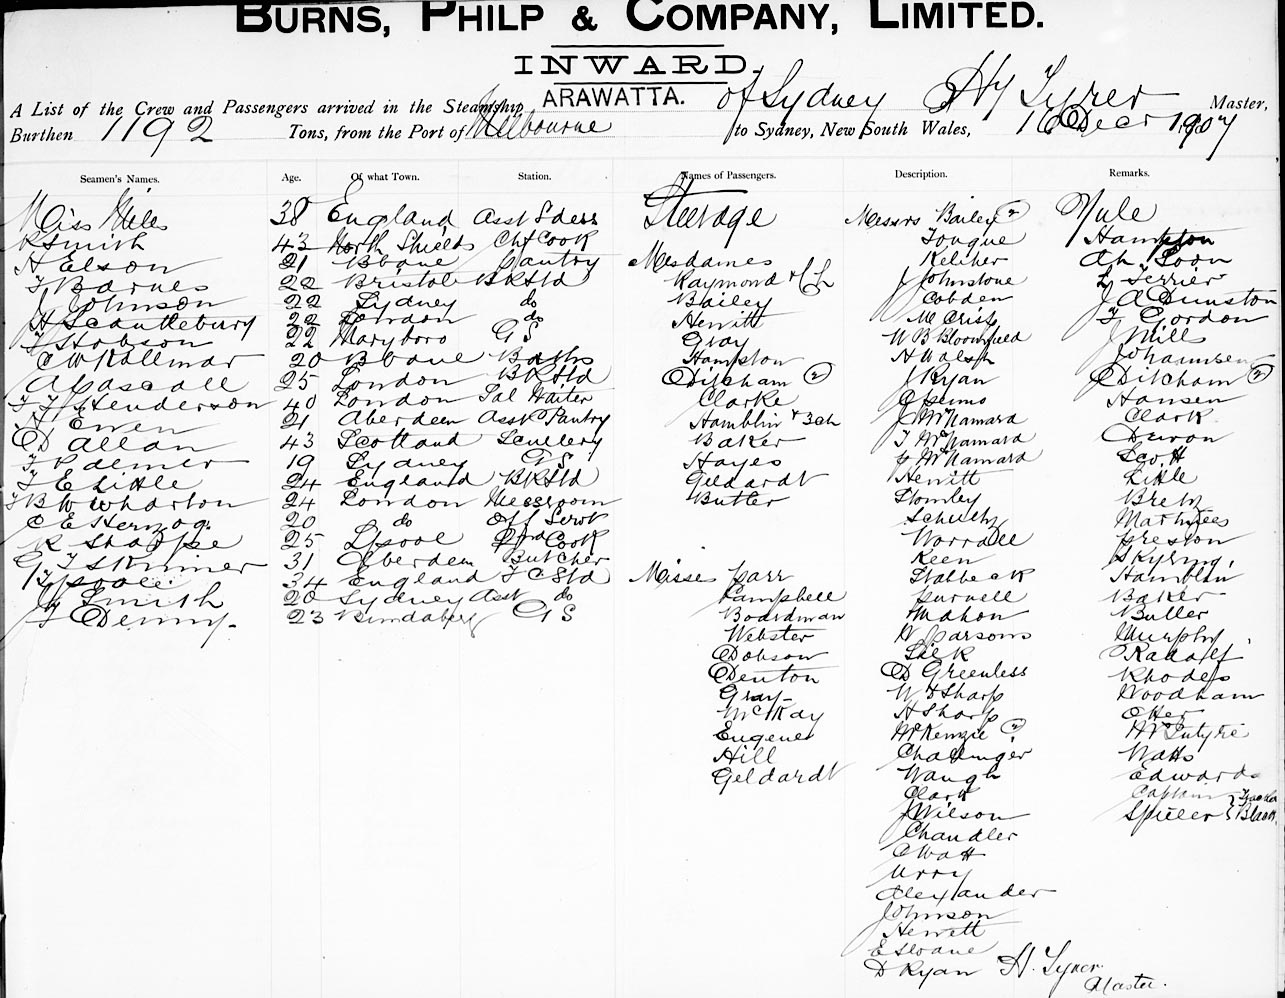 BURNS, PHILP & COMPANY, LIMITED.
INWARD.
A List of the Crew and Passengers arrived in the Steamship ARAWATTA. of Sydney Hy Tyrer Master,
Burthen 1192 Tons, from the Port of Melbourne to Sydney, New South Wales, 16 Decr 1907
Seamen's Names. Age. Of what Town. Station. Names of Passengers. Description. Remarks.
Miss Mills 38 England Asst Sdess
R Smith 43 North Shields Chf Cook
H Elson 21 Bbane Pantry
T Barnes 22 Bristol BR Std
J Johnson 22 Sydney do
H Scantlebury 22 London do
T Hobson 22 Maryboro G S
C W Kallmar 20 Bbane Baths
A Cascall 25 London BR Std
T T Henderson 40 London Sal Waiter
A Ewen 21 Aberdeen Asst Pantry
D Allan 43 Scotland Scullery
T Palmer 19 Sydney G S
T E Little 24 England BR Std
B W Wharton 24 London Messroom
C E Herzog 20 do Off Servt
R Sharpe 25 L'pool 2nd Cook
G T Skinner 31 Aberdeen Butcher
T Poole 34 England F C Std
H Smith 20 Sydney Asst do
T Denny. 23 Bundaberg G S
Steerage
Mesdames
Raymond & Ch
Bailey
Hewitt
Gray
Hampston
Ditcham (2)
Clarke
Hamblin & 3 Ch
Baker
Hayes
Geldardt
Butler
Misses Carr
Campbell
Boardman
Webster
Dobson
Denton
Gray
McKay
Eugene
Hill
Geldardt
Messrs Bailey (2)
Tongue
Keliher
J Johnstone
Cobden
McCrisp
W B Bloomfield
H Walsh
J Ryan
J McNamara
T McNamara
McNamara
Hewitt
Lomley
Schultz
Worrall
Keen
Stalbeck
Purnell
Mahon
W Parsons
Silk
D Greenless
W D Sharp
H Sharp
McKenzie (2)
Challinger
Waugh
Clark
J Wilson
Chandler
C Watt
Urry
Alexander
Johnson
Hewitt
E Sloane
D Ryan H. Tyrer
Master.
Mule
Hampton
Ah Poon
L Terrier
J A Dunston
T Gordon
J Mills
Johannsen
Ditcham (2)
Hansen
Clark
Duron
Scott
Little
Bretz
Preston
Skyring
Hamblin
Baker
Butler
Murphy
Radolf
Rhodes
Woodham
McIntyre
Watts
Edwards
Captain
Spiller } Black